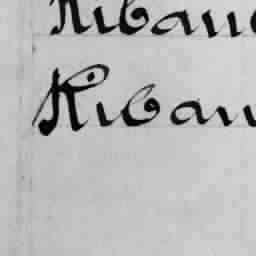 Ribau
Ribau